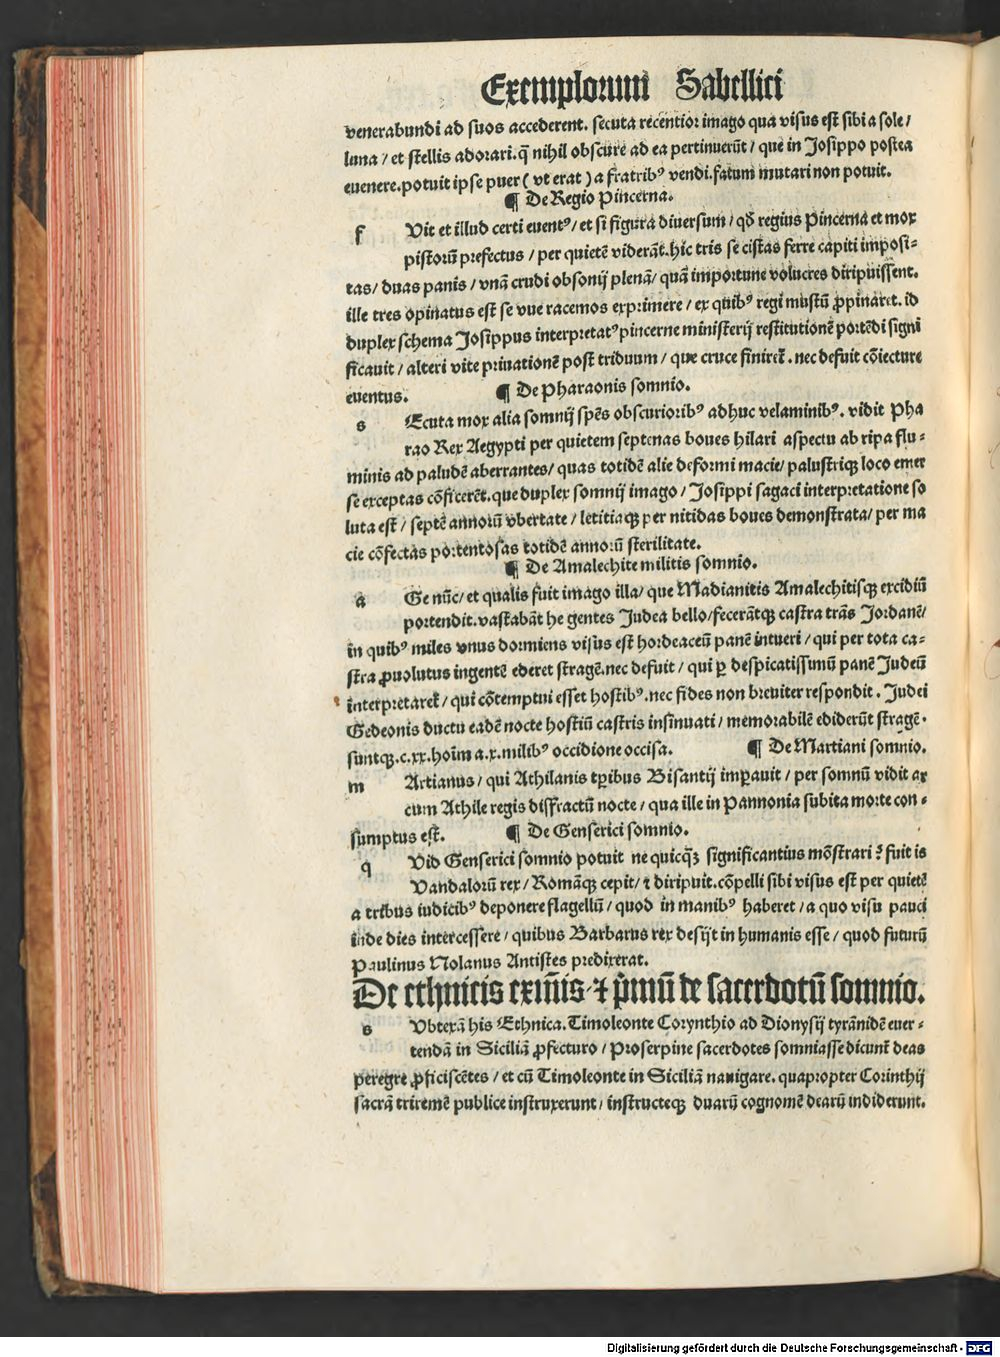 Exemplorum Sabellici
venerabundi ad suos accederent. secuta recentior imago qua visus est sibi a sole /
luna / et stellis adorari. q̃ nihil obscure ad ea pertinuerũt / que in Josippo postea
euenere. potuit ipse puer ( vt erat ) a fratribꝰ vendi. fatum mutari non potuit.
¶ De Regio Pincerna.
f Vit et illud certi euentꝰ / et si figura diuersum / qđ regius Pincerna et mox
pistorũ prefectus / per quietẽ viderãt. hic tris se cistas ferre capiti imposi⸗
tas / duas panis / vnã crudi obsonij plenã / quã importune volucres diripuissent.
ille tres opinatus est se vue racemos exprimere / ex quibꝰ regi mustũ ꝓpinaret. id
duplex schema Josippus interpretatꝰ pincerne ministerij restitutionẽ portẽdi signi
ficauit / alteri vite priuationẽ post triduum / que cruce finiret̃. nec defuit cõiecture
euentus. ¶ De Pharaonis somnio.
s Ecuta mox alia somnij spẽs obscurioribꝰ adhuc velaminibꝰ. vidit Pha
rao Rex Aegypti per quietem septenas boues hilari aspectu ab ripa flu⸗
minis ad paludẽ aberrantes / quas totidẽ alie deformi macie / palustriqꝫ loco emer
se exceptas cõficerẽt. que duplex somnij imago / Josippi sagaci interpretatione so
luta est / septẽ annorũ vbertate / letitiaqꝫ per nitidas boues demonstrata / per ma
cie cõfectas portentosas totidẽ annorũ sterilitate.
¶ De Amalechite militis somnio.
a Ge nũc / et qualis fuit imago illa / que Madianitis Amalechitisqꝫ excidiũ
portendit. vastabãt he gentes Judea bello / fecerãtqꝫ castra trãs Jordanẽ /
in quibꝰ miles vnus dormiens visus est hordeaceũ panẽ intueri / qui per tota ca⸗
stra ꝓuolutus ingentẽ ederet stragẽ. nec defuit / qui ꝑ despicatissimũ panẽ Judeũ
interpretaret̃ / qui cõtemptui esset hostibꝰ. nec fides non breuiter respondit. Judei
Gedeonis ductu eadẽ nocte hostiũ castris insinuati / memorabilẽ ediderũt stragẽ.
suntqꝫ. c. xx. hoĩm a. x. milibꝰ occidione occisa. ¶ De Martiani somnio.
m Artianus / qui Athilanis tꝑibus Bisantij imꝑauit / per somnũ vidit ar
cum Athile regis diffractũ nocte / qua ille in Pannonia subita morte con⸗
sumptus est. ¶ De Genserici somnio.
q Vid Genserici somnio potuit ne quicq̃ꝫ significantius mõstrari ? fuit is
Vandalorũ rex / Romãqꝫ cepit / ⁊ diripuit. cõpelli sibi visus est per quietẽ
a tribus iudicibꝰ deponere flagellũ / quod in manibꝰ haberet / a quo visu pauci
inde dies intercessere / quibus Barbarus rex desijt in humanis esse / quod futurũ
Paulinus Nolanus Antistes predixerat.
De ethnicis eximĩs ⁊ p̃mũ de sacerdotũ somnio.
s Vbtexã his Ethnica. Timoleonte Corynthio ad Dionysij tyrãnidẽ euer⸗
tendã in Siciliã ꝓfecturo / Proserpine sacerdotes somniasse dicunt̃ deas
peregre ꝓficiscẽtes / et cũ Timoleonte in Siciliã nauigare. quapropter Corinthij
sacrã triremẽ publice instruxerunt / instructeqꝫ duarũ cognomẽ dearũ indiderunt.
Digitalisierung gefördert durch die Deutsche Forschungsgemeinschaft - DFG